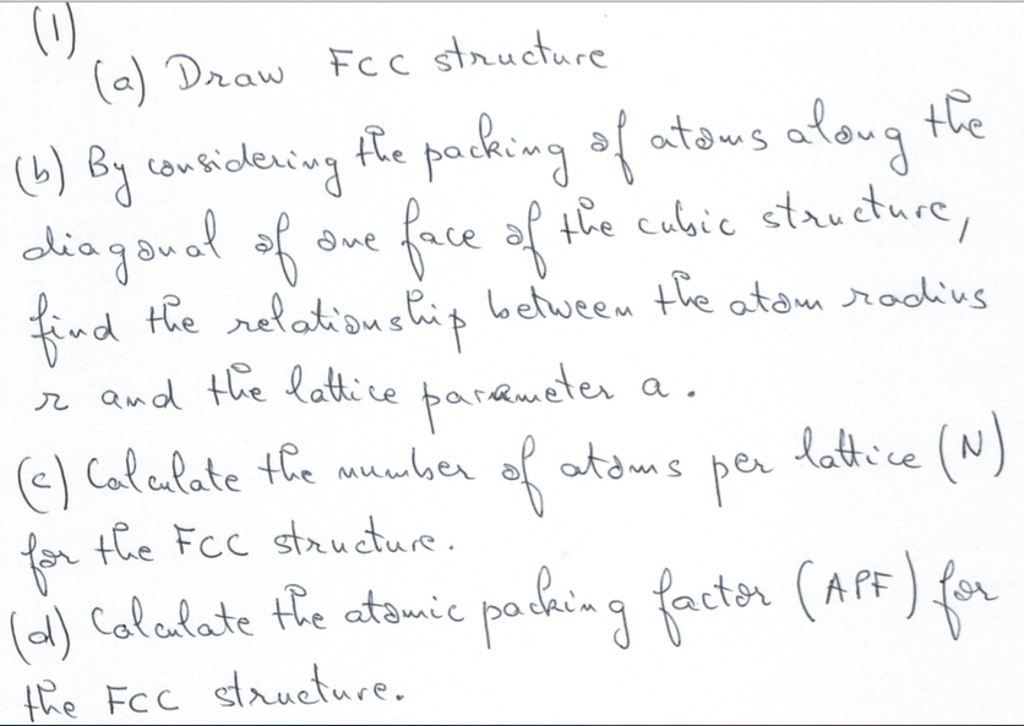 (1)
(a) Draw FCC structure
(b) By considering the packing of atoms along the
diagonal of one face of the cubic structure,
find the relationship between the atom radius
r and the lattice parameter a.
(c) Calculate the number of atoms per lattice (N)
for the FCC structure.
(d) Calculate the atomic packing factor (APF) for
the FCC structure.